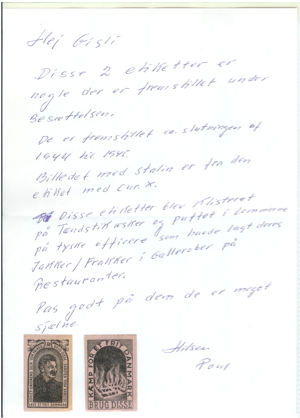 Hej Gisli
Disse 2 etiketter er
nogle der er fremstillet under
Besættelsen.
De er fremstillet ca. slutningen af
1944 til 1945.
Billedet med Stalin er fra den
etiket med Cur. X.
Disse etiketter blev klisteret
på Tændstikæsker og puttet i lommerne
på tyske officere som havde lagt deres
Jakker/Frakker i Gallerober på
Restauranter.
Pas godt på dem de er meget
sjælne.
Hilsen
Poul
KÆMP FOR ET FRIT DANMARK
BRUG DISSE